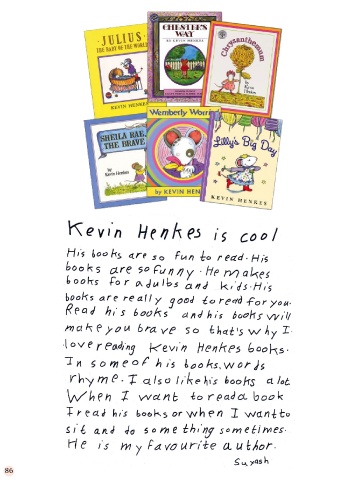 JULIUS
THE BABY OF THE WORLD
KEVIN HENKES
CHESTER'S
WAY
BY KEVIN HENKES
Chrysanthemum
by Kevin
Henkes
SHEILA RAE,
THE BRAVE
by Kevin Henkes
Wemberly Worried
by KEVIN HENKES
Lilly's Big Day
KEVIN HENKES
Kevin Henkes is cool
His books are so fun to read. His
books are so funny. He makes
books for adulbs and kids. His
books are really good to read for you.
Read his books and his books will
make you brave so that's why I
love reading Kevin Henkes books.
In some of his books, words
rhyme. I also like his books a lot.
When I want to read a book
I read his books or when I want to
sit and do some thing sometimes.
He is my favourite author.
Suyash
86